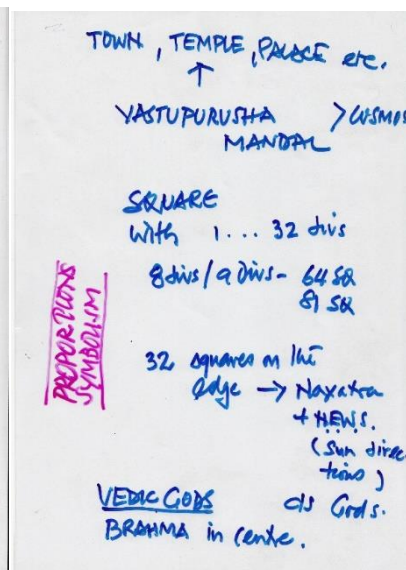 TOWN, TEMPLE, PALACE etc.
↑
VASTUPURUSHA > COSMOS
MANDAL
SQUARE
With 1... 32 divs
8 divs / 9 divs - 64 SQ
81 SQ
PROPORTIONS
SYMBOLISM
32 squares on the
edge → Naxatra
+ NEWS.
(Sun direc
tions)
as Gods.
VEDIC GODS
BRAHMA in centre.